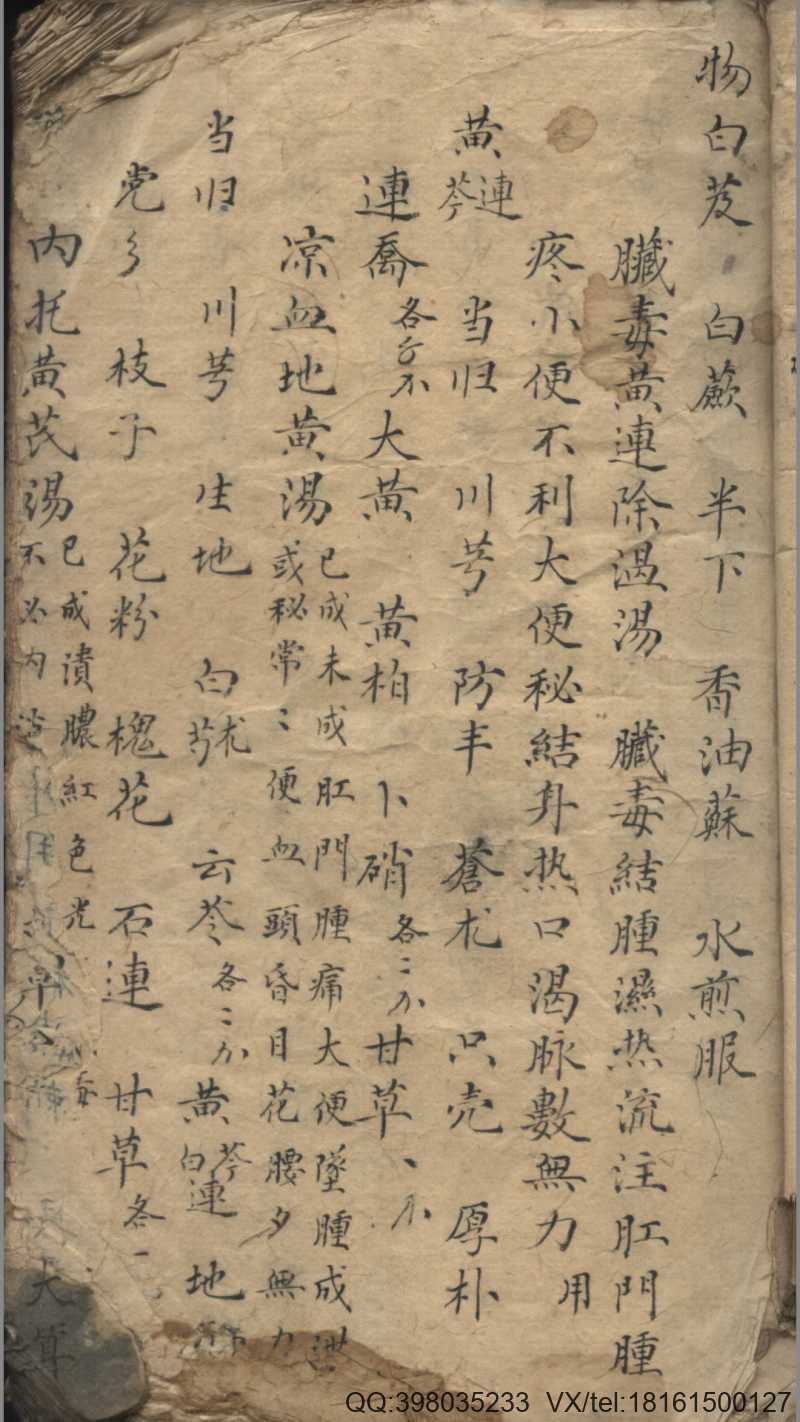 物白芨 白蔹 半下 香油蘇 水煎服
臟毒黃連除湿湯 臟毒結腫濕热流注肛門腫
疼小便不利大便秘結外热口渴脉數無力 用
黄芩連 当归 川芎 防丰 蒼朮 只壳 厚朴
連喬各 大黄 黄柏 卜硝各二 甘草
凉血地黄湯 已成未成肛門腫痛大便墜腫成
或秘常〻便血頭昏目花腰夕無力
当归 川芎 生地 白芍朮 云苓各二 黄芩連 白 地
党 枝子 花粉 槐花 石連 甘草各一
内托黄芪湯 已成潰膿紅色光
不必内
QQ:398035233 VX/tel:18161500127